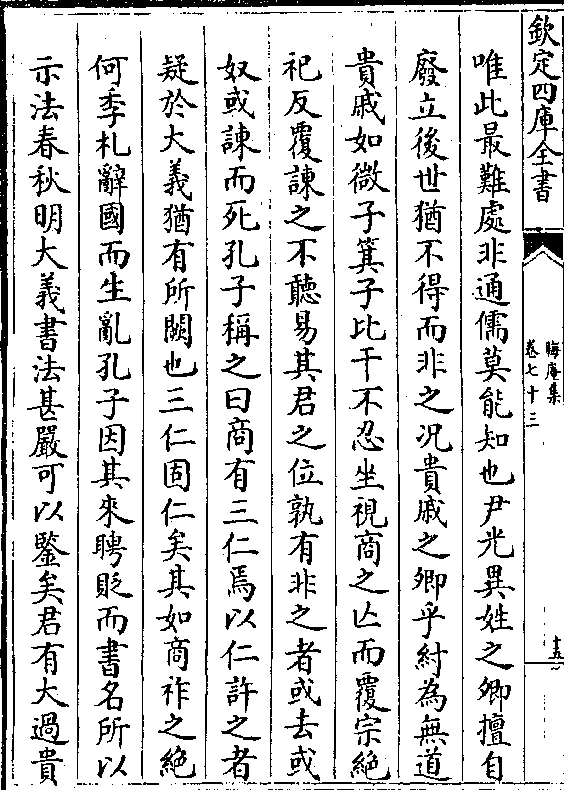 欽定四庫全書
晦庵集
卷七十三
十五
唯此最難處非通儒莫能知也尹光異姓之卿擅自
廢立後世猶不得而非之况貴戚之卿乎紂為無道
貴戚如微子箕子比干不忍坐視商之亾而覆宗絶
祀反覆諫之不聽易其君之位孰有非之者或去或
奴或諫而死孔子稱之曰商有三仁焉以仁許之者
疑於大義猶有所闕也三仁固仁矣其如商祚之絶
何季札辭國而生亂孔子因其來聘貶而書名所以
示法春秋明大義書法甚嚴可以鑒矣君有大過貴